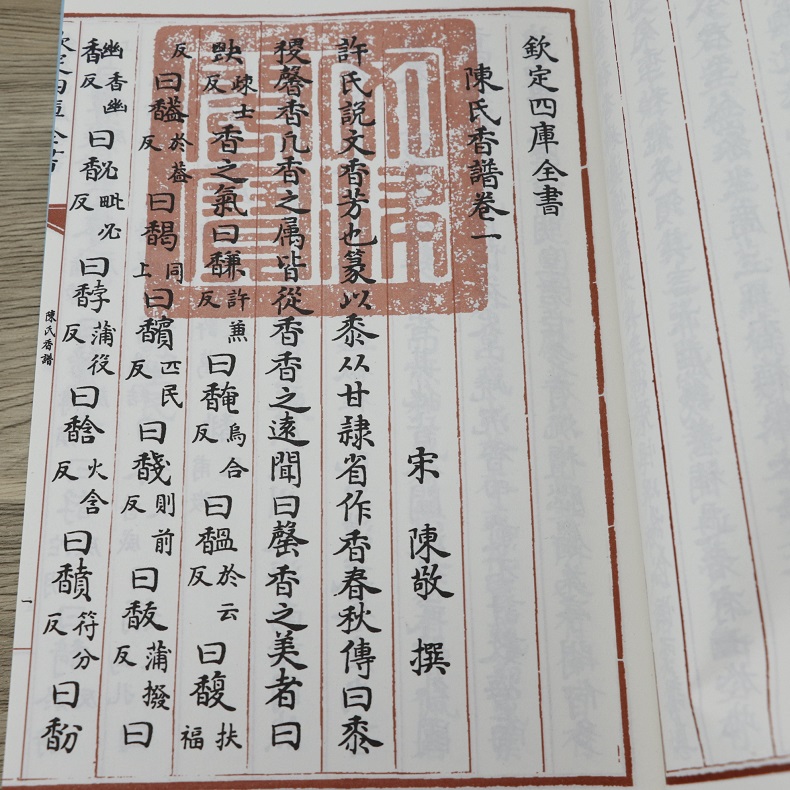 欽定四庫全書
陳氏香譜卷一
宋 陳敬 撰
許氏説文香芳也篆以黍从甘隷省作香春秋傳曰黍
稷馨香凡香之属皆從香香之遠聞曰罄香之美者曰
疎士反香之氣曰馦許蒹反曰馣烏合反曰馧於云反曰馥扶福
反曰於葢反曰馤同上曰馪匹民反曰馢則前反曰蒲撥反曰
曰毗必反曰馞蒲役反曰馠火含反曰馩符分反曰馚
陳氏香譜
一